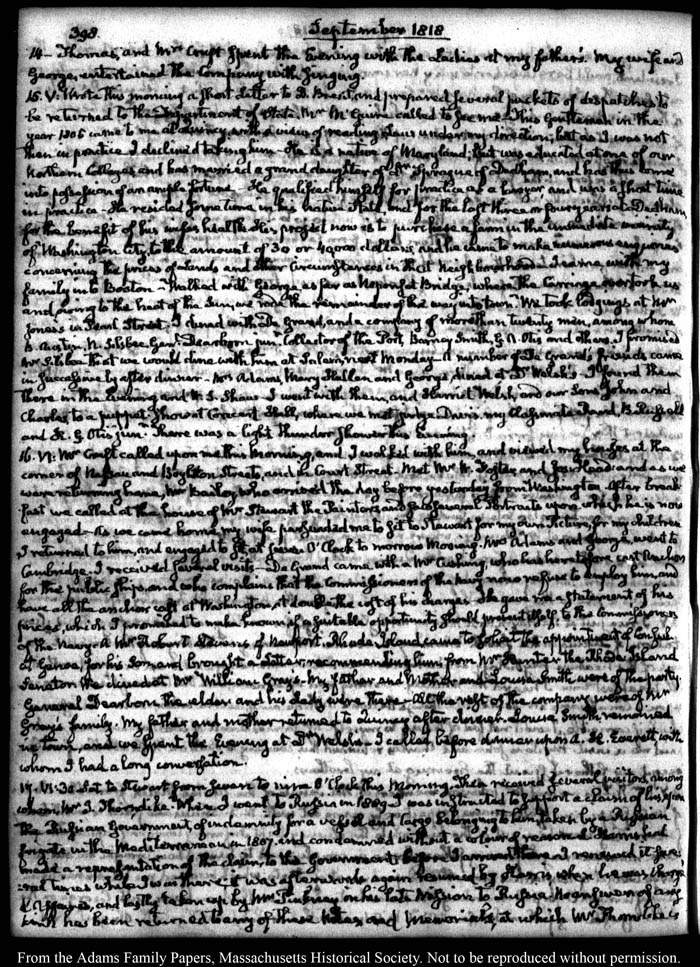 398.
September 1818
14— Thomas, and Mrs Cruft spent the Evening with the Ladies at my father's. My wife and
George, entertained the Company with singing.
15. V: Wrote this morning a short letter to D. Brent, and prepared several packets of despatches to
be returned to the Department of State. Mr McGuire called to see me. This Gentleman in the
year 1806 came to me at Quincy, with a view of reading Law under my direction; but as I was not
then in practice I declined taking him— He is a native of Maryland; but was educated at one of our
Northern Colleges, and has married a grand daughter of Sprague of Dedham, and has thus come
into possession of an ample fortune— He qualified himself for practice as a lawyer and was a short time
in practice— He resided for a time in his native State and for the last three or four years at Dedham
for the benefit of his wife's health. His project now is to purchase a farm in the immediate vicinity
of Washington City, to the amount of 30 or 40000 dollars, and he came to make numerous enquiries
concerning the prices of Lands and other Circumstances in that neighbourhood— I came with my
family into Boston— Walked with George as far as Neponset Bridge, where the Carriage overtook us
and owing to the heat of the Sun, we rode the remainder of the way into town. We took lodgings at Mrs
Jones's in Pearl Street. I dined with De Grand, and a company of more than twenty men, among whom
B. Austin, N. Silsbee, Genl. Dearborn junr. Collector of the Port, Barney Smith, G. Otis and others. I promised
Mr Silsbee that we would dine with him at Salem, next Monday— A number of De Grand's friends came
in successively after dinner— Mrs Adams, Mary Hellen and George, dined at Dr Welsh's— I found them
there in the Evening and W. S. Shaw. I went with them, and Harriet Welsh, and our Sons John and
Charles, to a puppet Show at Concert Hall, where we met Judge Davis, my Classmate David B. Russell
and H. G. Otis junr. There was a light thunder Shower this Evening.
16. VI: Mr Cruft called upon me this Morning, and I walked with him, and viewed my houses at the
corner of Nassau and Boylston Streets, and in Court Street. Met Mr W. Foster, and Jos: Hood; and as we
were returning home, Mr Bailey, who arrived the day before yesterday from Washington. After break-
fast we called at the house of Mr Stewart the Painter, and saw several Portraits upon which he is now
engaged— As we came home, my wife persuaded me to sit to Stewart for my own Picture, for my children
I returned to him, and engaged to sit, at seven O'Clock to-morrow Morning. Mrs Adams and George went to
Cambridge. I received several visits— De Grand came with a Mr Cushing, who has heretofore cast Anchors
for the public Ships, and who complains that the Commissioners of the Navy now refuse to employ him, and
have all the anchors cast at Washington, at double the cost of his charges. He gave me a statement of his
prices, which I promised to make known, if a suitable opportunity should present itself to the Commissioners
of the Navy. A Mr Robert Stevens of Newport, Rhode Island came to solicit the appointment of Consul
at Genoa, for his Son, and brought a letter, recommending him from Mr Hunter the Rhode Island
Senator. We dined at Mr William Gray's. My father and Mother and Louisa Smith were of the party.
General Dearborn the elder and his Lady were there— All the rest of the company were of Mr
Gray's family. My father and mother returned to Quincy after dinner. Louisa Smith remained
in town, and we spent the Evening at Dr Welsh's— I called before dinner upon A. H. Everett with
whom I had a long conversation.
17. VI:30 Sat to Stewart from seven to nine O'Clock this Morning. Then received several visitors, among
whom, Mr I. Thorndike. When I went to Russia in 1809 I was instructed to support a claim of his upon
the Russian Government, of indemnity for a vessel and Cargo belonging to him, taken by a Russian
frigate in the Mediterranean in 1807, and condemned without a colour of reason. Harris had
made a representation of the claim to the Government before I arrived there. I renewed it sev-
eral times while I was there; it was afterwards again resumed by Harris, when he was Chargé
d'Affaires, and lastly taken up by Mr Pinkney on his late Mission to Russia. No answer of any
kind has been returned to any of these Notes, and Memorials, at which Mr Thorndike is
From the Adams Family Papers, Massachusetts Historical Society. Not to be reproduced without permission.